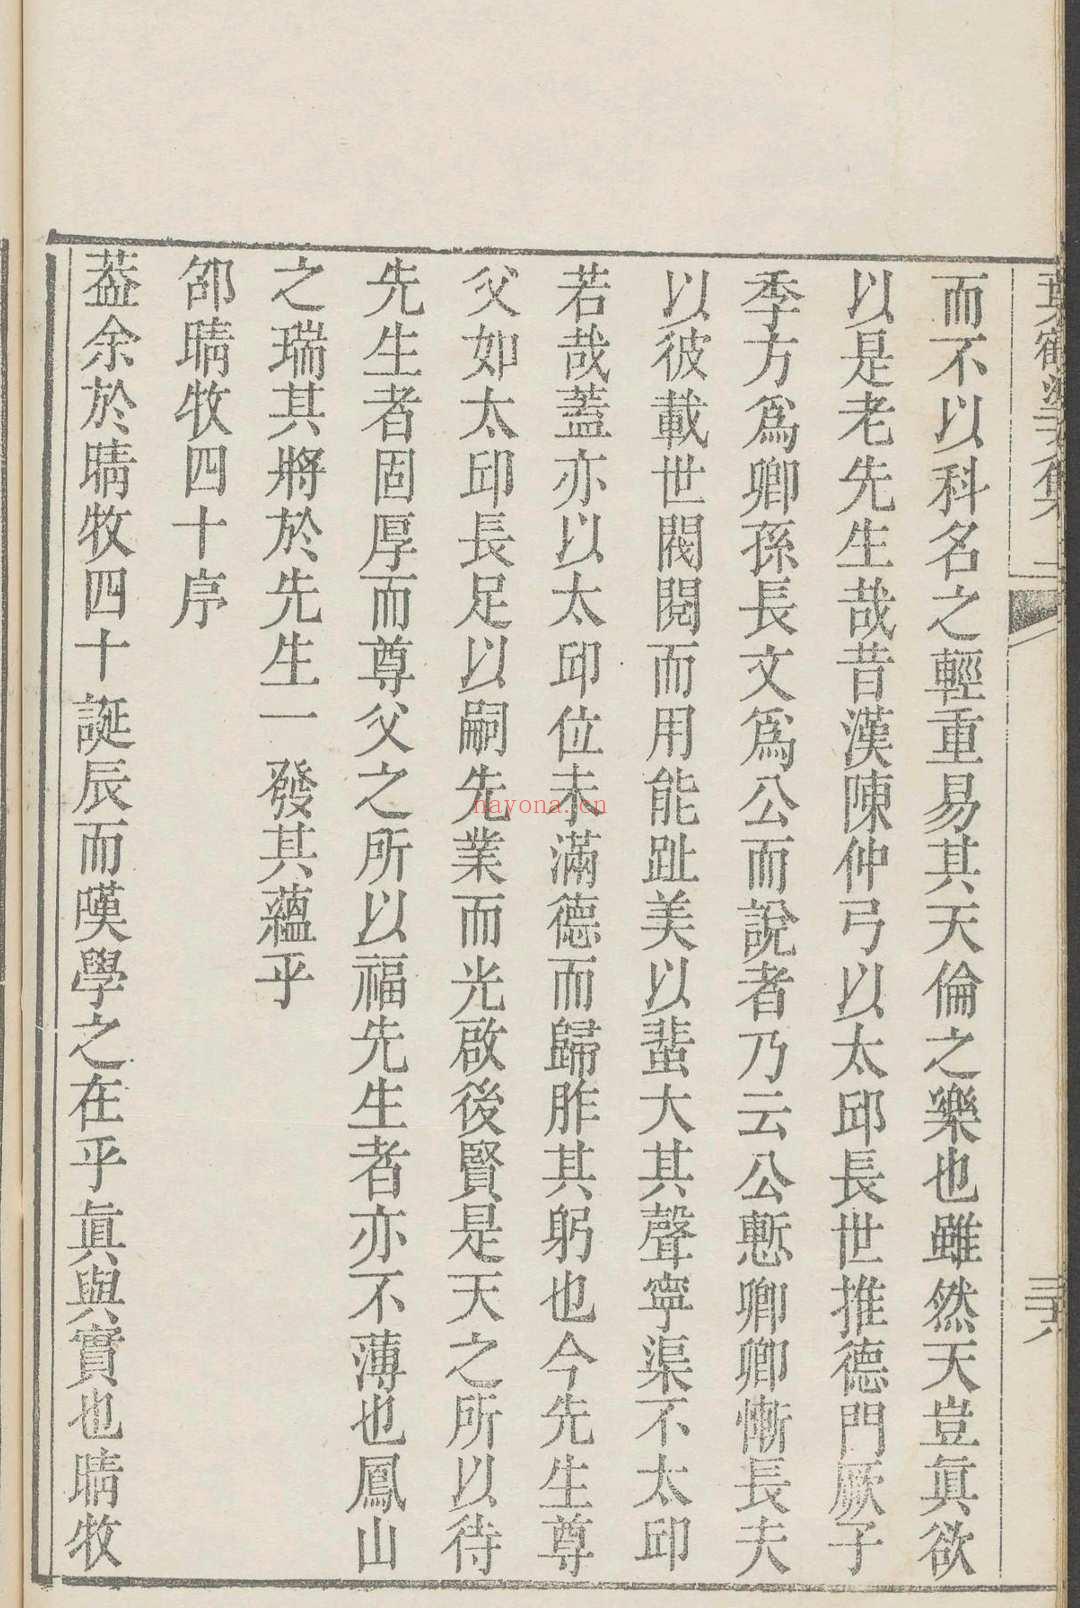 葉鶴塗文集 二
三六
而不以科名之輕重易其天倫之樂也雖然天豈眞欲
以是老先生哉昔漢陳仲弓以太邱長世推德門厥子
季方爲卿孫長文爲公而說者乃云公慙卿卿慚長夫
以彼載世閥閱而用能趾美以蜚大其聲寧渠不太邱
若哉蓋亦以太邱位未滿德而歸胙其躬也今先生尊
父如太邱長足以嗣先業而光啟後賢是天之所以待
先生者固厚而尊父之所以福先生者亦不薄也鳳山
之瑞其將於先生一發其蘊乎
郃晴牧四十序
葢余於晴牧四十誕辰而嘆學之在乎眞與實也晴牧
nayona.cn